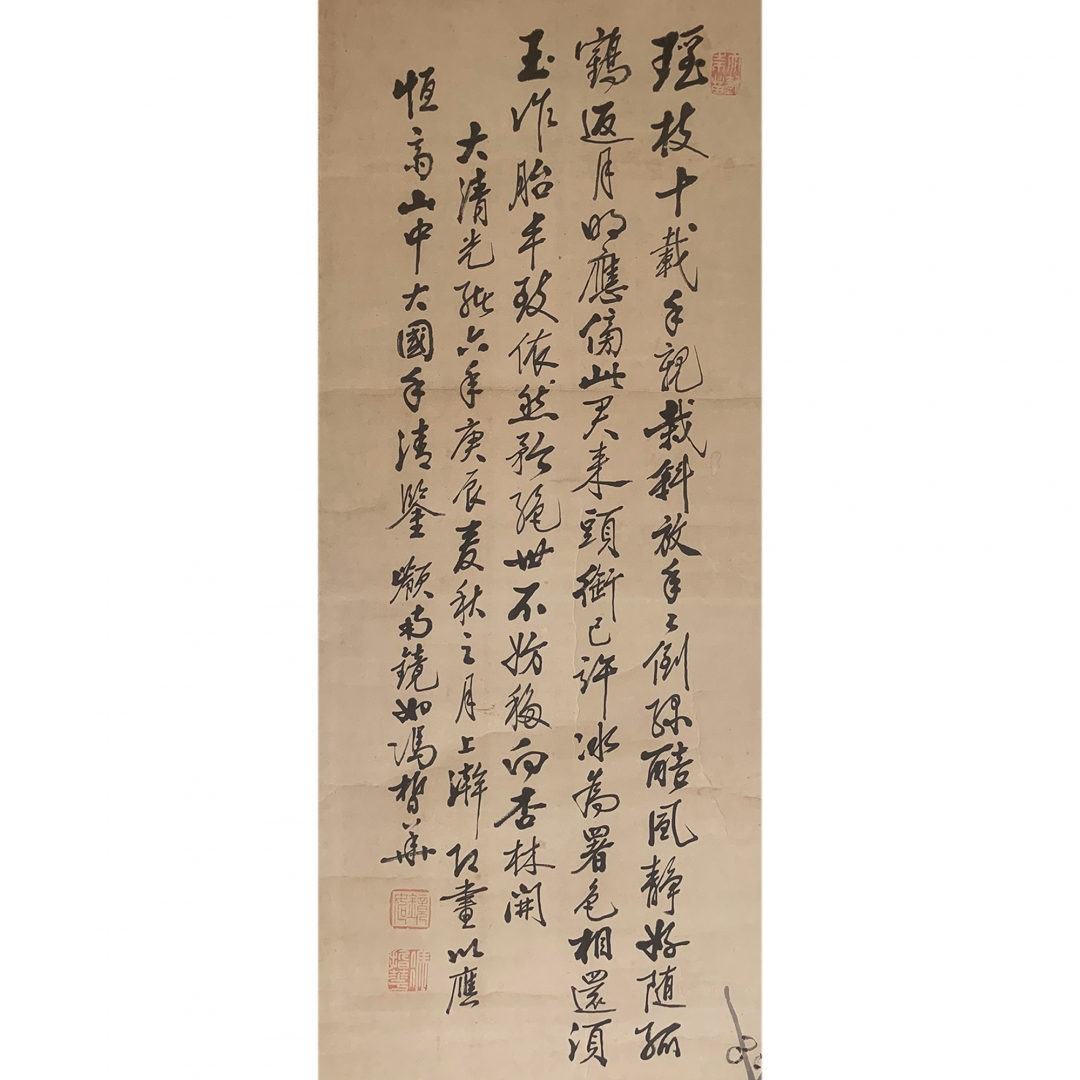 瑶枝十載手親栽斜放年〻倒綠醅風静好随孤
鶴返月明應傍此君来頭銜已許冰為署色相還須
玉作胎丰致依然矜絶世不妨移向杏林開
大清光緒六年庚辰麦秋之月上澣 即畫以應
恒斎山中大國手清鑒 嶺南鏡如馮晢華